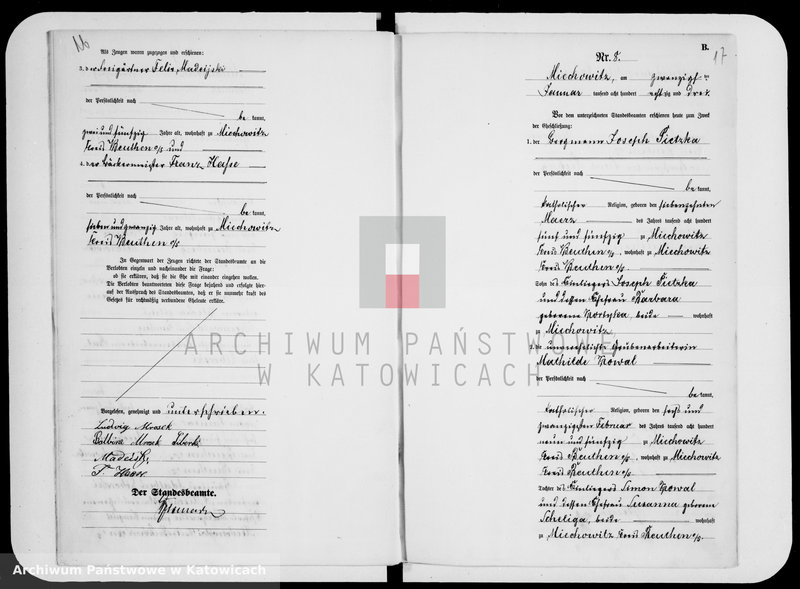 16
Als Zeugen waren zugezogen und erschienen:
3. der Freigärtner Felix Madeijski
der Persönlichkeit nach
be kannt,
zwei und fünfzig Jahre alt, wohnhaft zu Miechowitz
Kreis Beuthen o/s und
4. der Bäckermeister Franz
der Persönlichkeit nach
be kannt,
sieben und zwanzig Jahre alt, wohnhaft zu Miechowitz
Kreis Beuthen o/s
In Gegenwart der Zeugen richtete der Standesbeamte an die
Verlobten einzeln und nacheinander die Frage:
ob sie erklären, daß sie die Ehe mit einander eingehen wollen.
Die Verlobten beantworteten diese Frage bejahend und erfolgte hier-
auf der Ausspruch des Standesbeamten, daß er sie nunmehr kraft des
Gesetzes für rechtmäßig verbundene Eheleute erkläre.
Vorgelesen, genehmigt und unterschrieben.
Ludwig Mrosek
Balbina Mrosek
Madeiski
Der Standesbeamte.
B.
17
Nr. 8.
Miechowitz, am zwanzigsten
Januar tausend acht hundert achtzig und drei.
Vor dem unterzeichneten Standesbeamten erschienen heute zum Zweck
der Eheschließung:
1. der Bergmann Joseph Pietzka
der Persönlichkeit nach
be kannt,
katholischer Religion, geboren den siebenzehnten
Maerz des Jahres tausend acht hundert
fünf und fünfzig zu Miechowitz
Kreis Beuthen o/s, wohnhaft zu Miechowitz
Kreis Beuthen o/s
Sohn des Einliegers Joseph Pietzka
und dessen Ehefrau Barbara
geborene beide wohnhaft
zu Miechowitz
2. die unverehelichte Grubenarbeiterin
Mathilde Nowal
der Persönlichkeit nach
be kannt,
katholischer Religion, geboren den sechs und
zwanzigsten Februar des Jahres tausend acht hundert
neun und fünfzig zu Miechowitz
Kreis Beuthen o/s, wohnhaft zu Miechowitz
Kreis Beuthen o/s
Tochter des Einliegers Simon Nowal
und dessen Ehefrau Susanna geborene
Scheliga, beide wohnhaft
zu Miechowitz Kreis Beuthen o/s.
ARCHIWUM PAŃSTWOWE
W KATOWICACH
Archiwum Państwowe w Katowicach